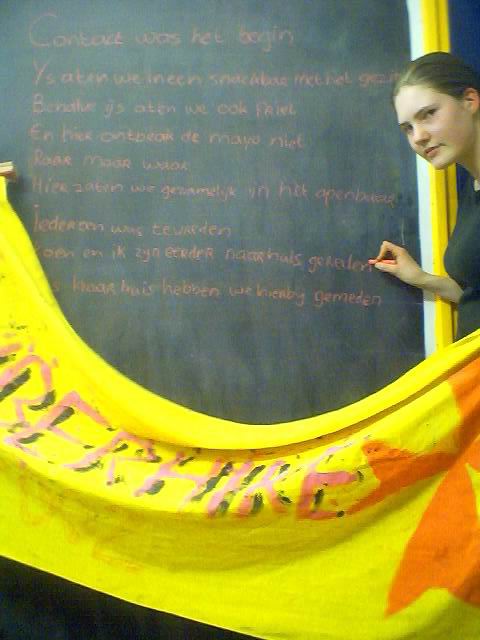 Contact was het begin
Ys aten we in een snackbar met het gezin
Behalve ijs aten we ook friet
En hier ontbrak de mayo niet
Raar maar waar
Hier zaten we gezamelijk in het openbaar
Iedereen was tevreden
en ik zyn eerder naar huis gereden
huis hebben we hierby gemeden
BERHIKE